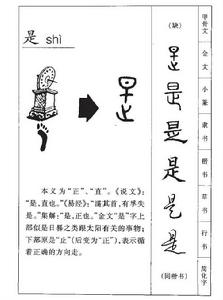 是 shì
本义为“正”、“直”。《说文》：
“是，直也。”《易经》：“濡其首，有孚失
是。”集解：“是，正也。”金文“是”字上
部似是日晷之类跟太阳有关的事物；
下部原是“止”（后变为“正”），表示循
着正确的方向走。
（缺）
是
是
是
是
是
是
（同楷书）
甲骨文
金文
小篆
隶书
楷书
草书
行书
简化字